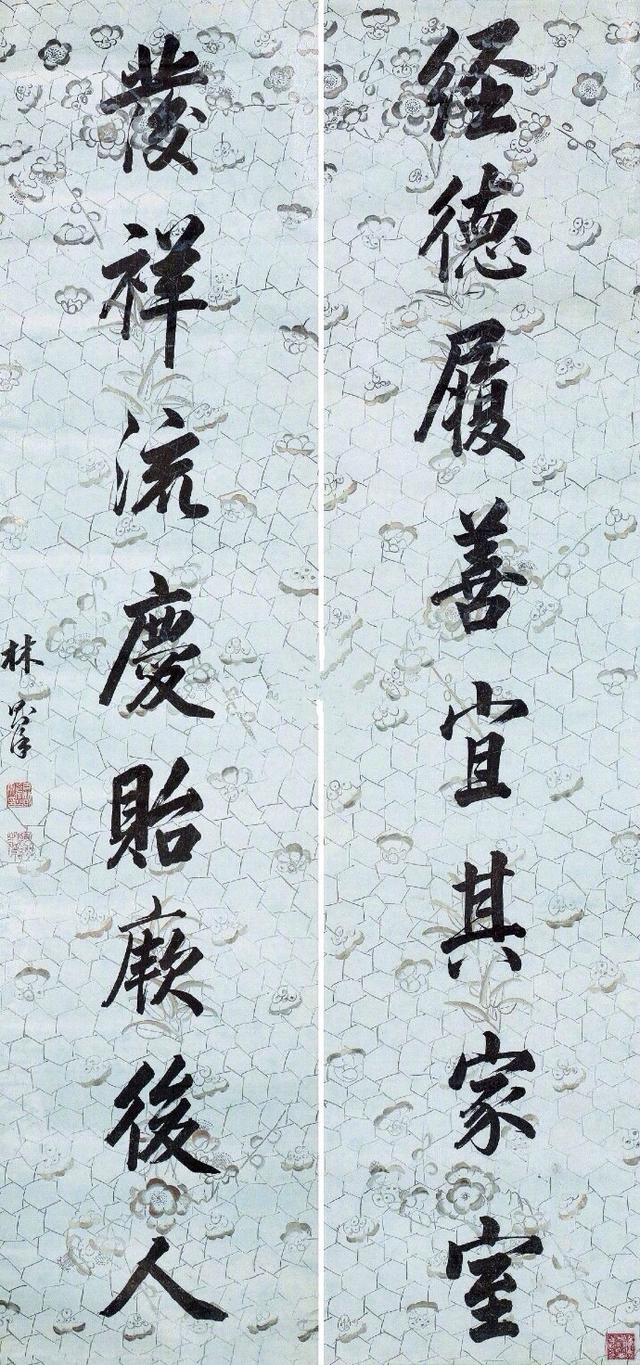 經德履善宜其家室
發祥流慶貽厥後人
林